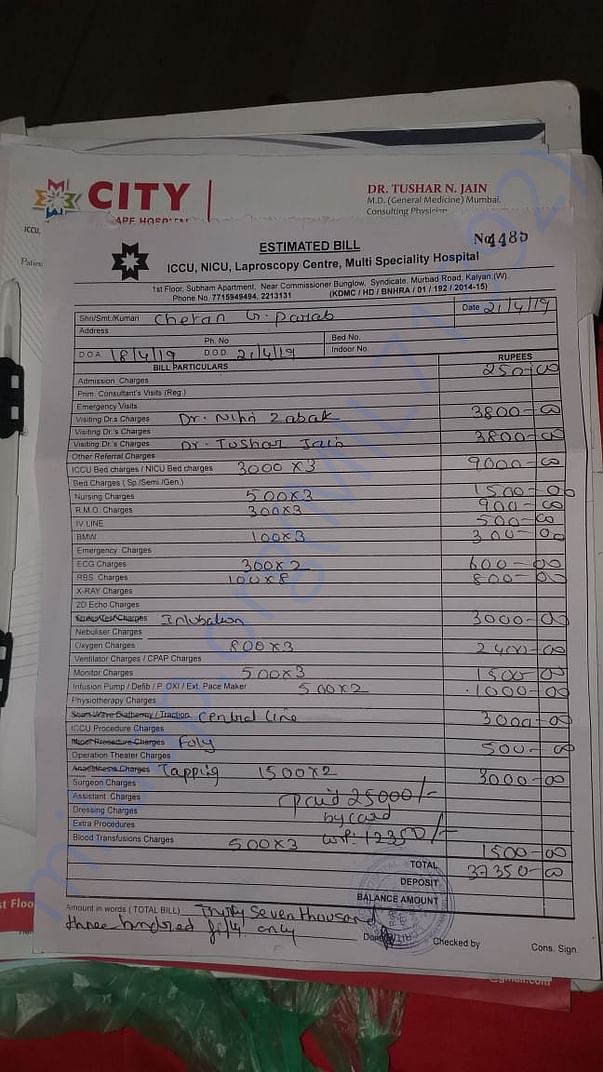 CITY
DR. TUSHAR N. JAIN
M.D. (General Medicine) Mumbai.
Consulting Physician
ICCU,
ESTIMATED BILL
No 4485
ICCU, NICU, Laproscopy Centre, Multi Speciality Hospital
1st Floor, Subham Apartment, Near Commissioner Bunglow, Syndicate, Murbad Road, Kalyan (W).
Phone No. 7715949494, 2213131 (KDMC / HD / BNHRA / 01 / 192 / 2014-15)
Shri/Smt./Kuman Chetan G. Parab Date 21/4/19
Address
Ph. No Bed No.
D.O.A. 18/4/19 D.O.D. 21/4/19 Indoor No.
BILL PARTICULARS RUPEES
Admission Charges 250-00
Prim. Consultant's Visits (Reg.)
Emergency Visits
Visiting Dr.s Charges Dr. 3800-00
Visiting Dr.'s Charges
Visiting Dr.'s Charges Dr. Tushar Jain 3800-00
Other Referral Charges
ICCU Bed charges / NICU Bed charges 3000 x 3 9000-00
Bed Charges ( Sp./Semi./Gen.)
Nursing Charges 500x3 1500-00
R.M.O. Charges 300x3 900-00
IV LINE 500-00
BMW 100x3 300-00
Emergency Charges
ECG Charges 300x2 600-00
RBS Charges 100x8 800-00
X-RAY Charges
2D Echo Charges
Intubation 3000-00
Nebuliser Charges
Oxygen Charges 800x3 2400-00
Ventilator Charges / CPAP Charges
Monitor Charges 500x3 1500-00
Infusion Pump / Defib / P. OXI / Ext. Pace Maker 500x2 1000-00
Physiotherapy Charges
Short Wave Diathermy / Traction Central line 3000-00
ICCU Procedure Charges
Minor Procedure Charges Foly 500-00
Operation Theater Charges
Anaesthesia Charges Tapping 1500x2 3000-00
Surgeon Charges
Assistant Charges paid 25000/-
Dressing Charges by card
Extra Procedures 12350/-
Blood Transfusions Charges 500x3 1500-00
TOTAL 37350-00
DEPOSIT
BALANCE AMOUNT
Amount in words ( TOTAL BILL) Thirty Seven thousand
three hundred fifty only
Checked by Cons. Sign.
st Floo
@gmail.com